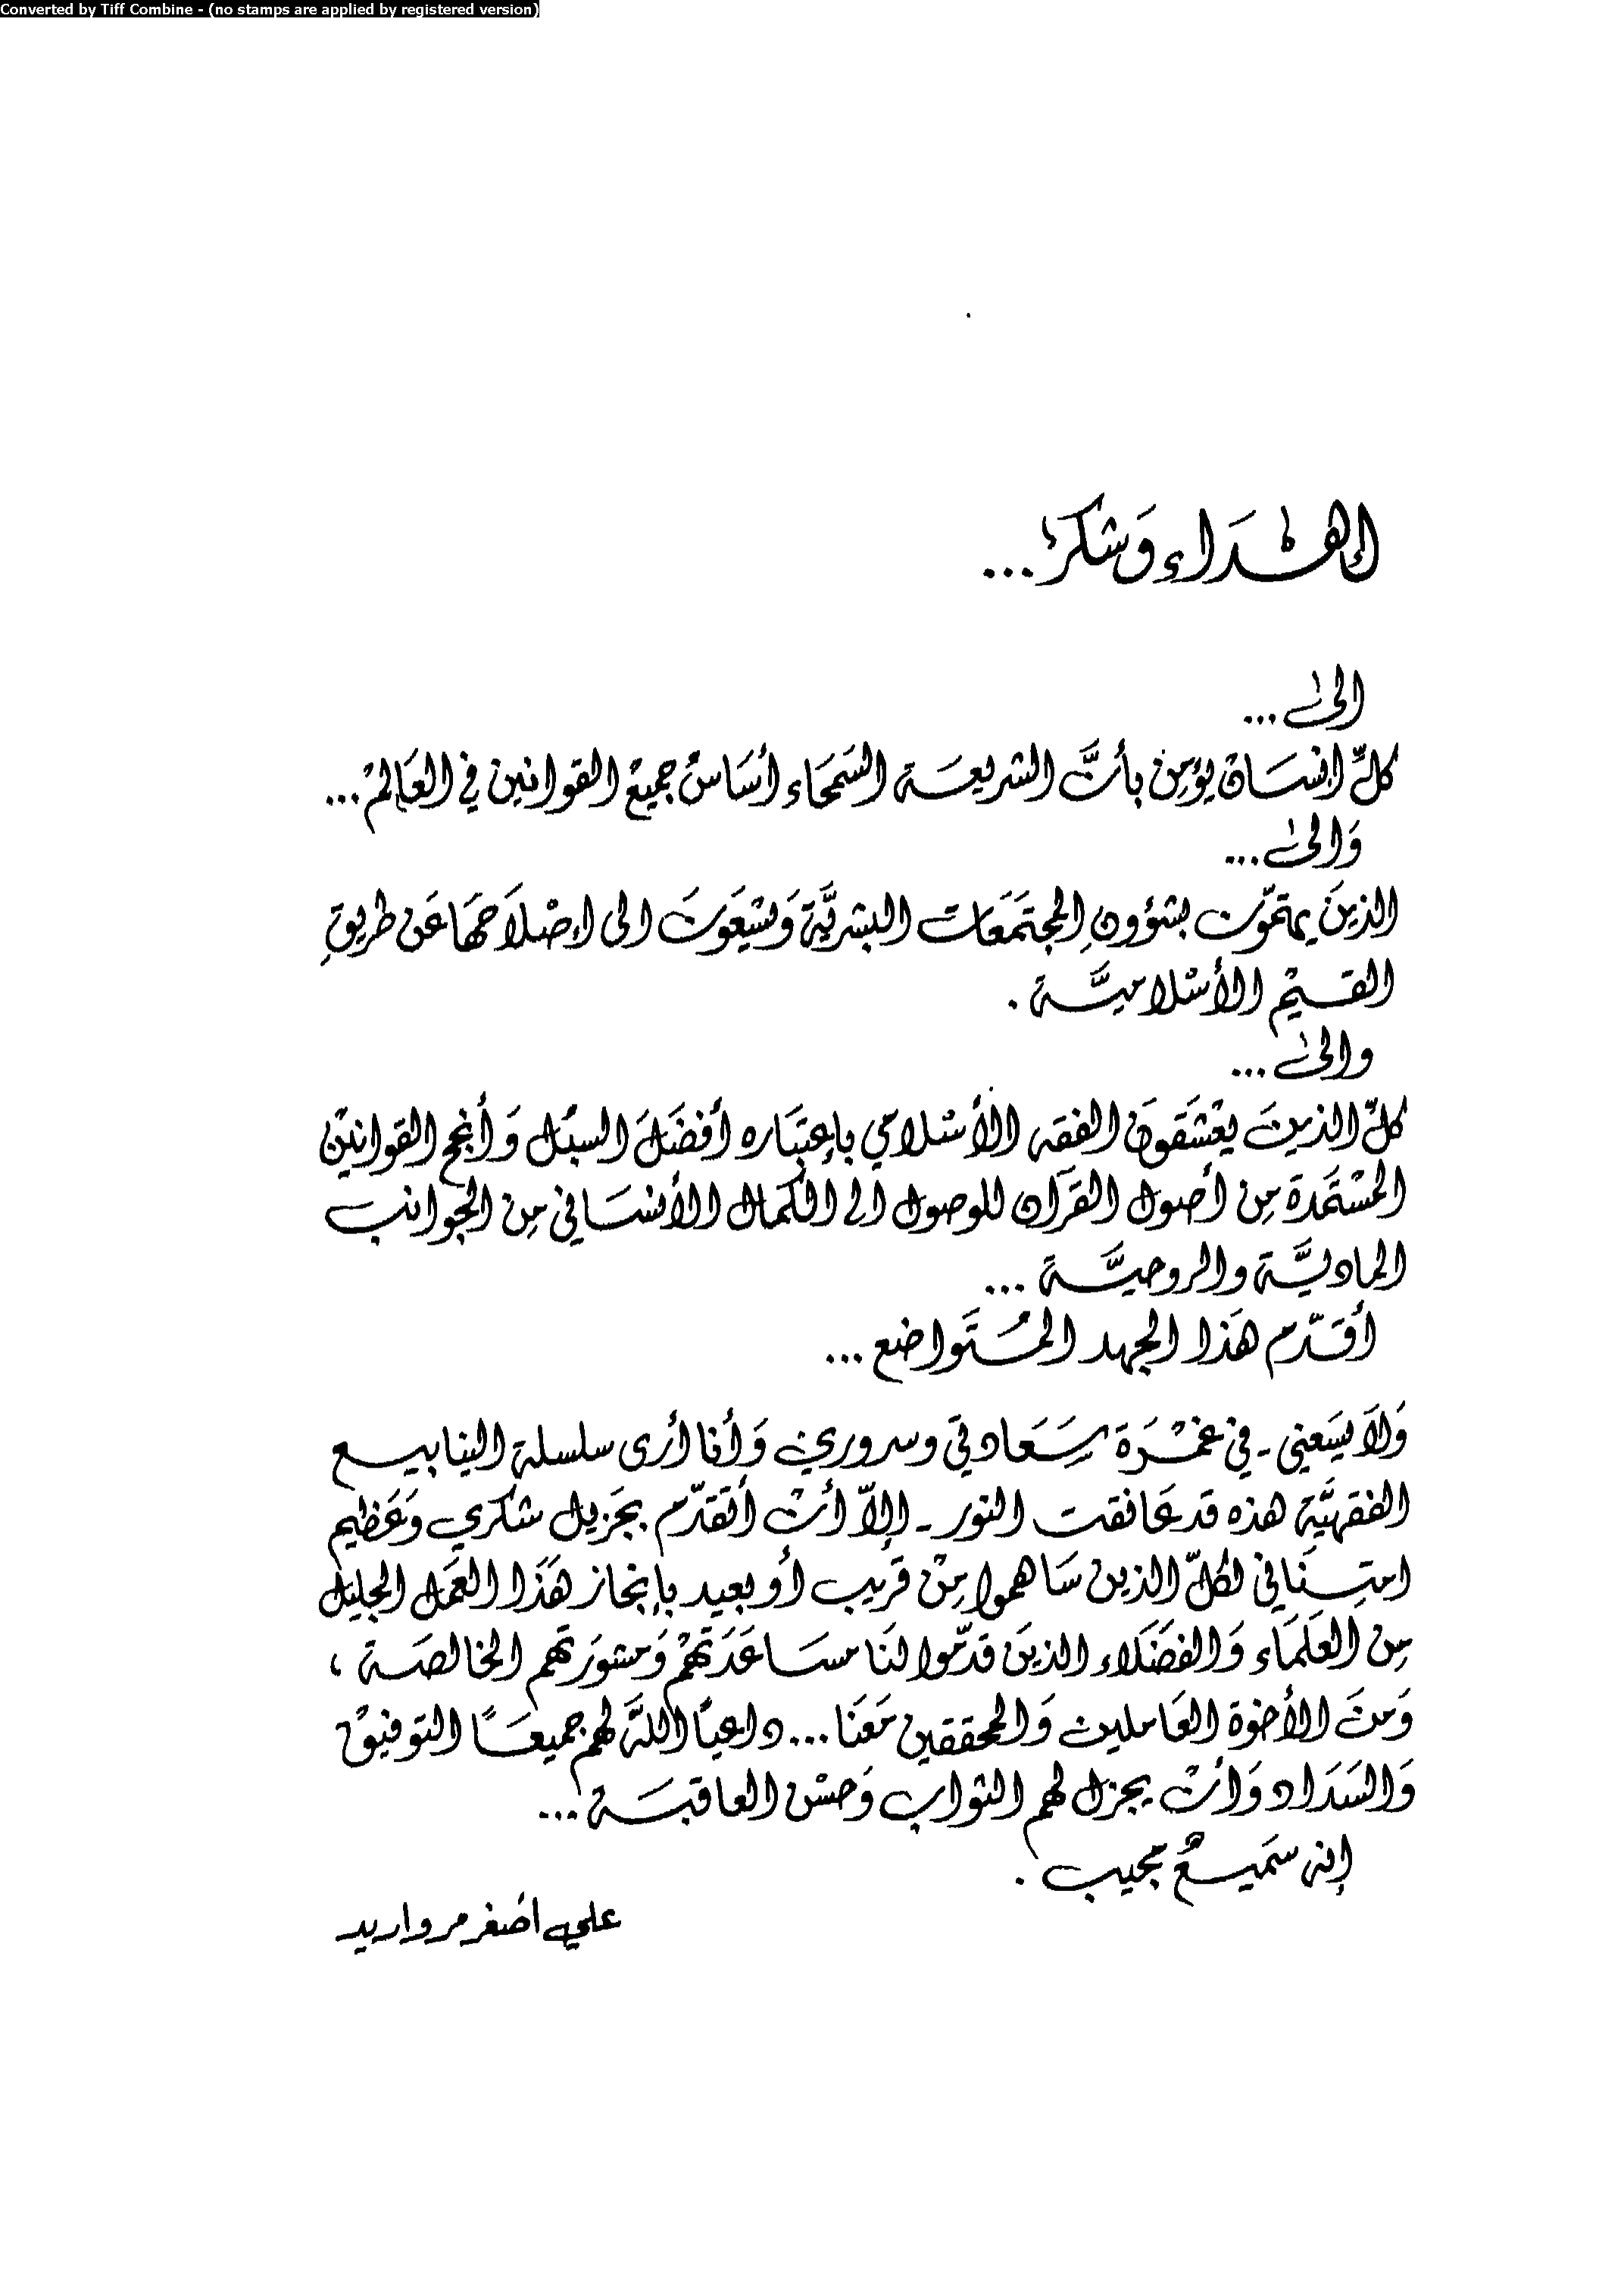 Converted by Tiff Combine - (no stamps are applied by registered version)
إهداء وشكر...
الى...
كلّ انسان يؤمن بأنَّ الشريعة السَمحَاء أسَاسُ جميع القوانين في العَالم...
وَالى...
الذينَ يهتمّون بشؤونِ المجتمَعَات البشريَّة وَيسْعَونَ الى إصْلاَحهَا عَن طريقِ
القيم الأسْلاميَّة .
والى...
كلّ الذينَ يعْشَقونَ الفقه الأسْلامي بإعتبَاره أفضَلَ السبُل وَأنجح القوانين
المسْتمَدة مِن أصول القرآن للوصول الى الكمال الأنسَاني مِن الجوانب
الماديَّة والروحيَّة ...
أقدّم هَذا الجهد المُتَواضع ...
وَلاَ يسَعني - في غمْرَة سَعَادتي وسروري وَأنا أرى سلسلة الينابيع
الفقهيَّة هذه قد عَانقت النور - إلاّ أنْ أتقدّم بجَزيل شكري وَعَظيم
امتِنَاني لكلّ الذين سَاهموا مِنْ قريب أو بعيد بإنجاز هَذَا العَمَل الجليل
مِن العلَمَاء وَالفضَلاء الذينَ قدّموا لنَا مسَاعَدَتهمْ وَمشورَتهم الخالصَة ،
وَمنَ الأخوة العَاملين وَالمحققين مَعَنا... داعيًا اللهَ لهم جميعًا التوفيق
وَالسَدَاد وَأنْ يجزل لهم الثواب وَحسْن العاقبَة ...
إنه سَميعٌ مجيب .
علي اصْغر مرواريد